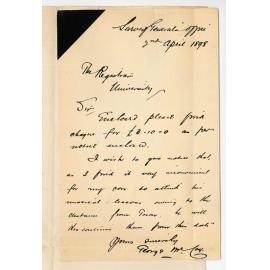 Surveyor General's Office
2nd April 1898
The Registrar
University
Sir
Enclosed please find
cheque for £2-10-0 as per
notice enclosed.
I wish to give notice that
as I find it very inconvenient
for my son to attend his
musical lessons owing to the
distance from Town, he will
discontinue them from this date
Yours sincerely
George McCoy